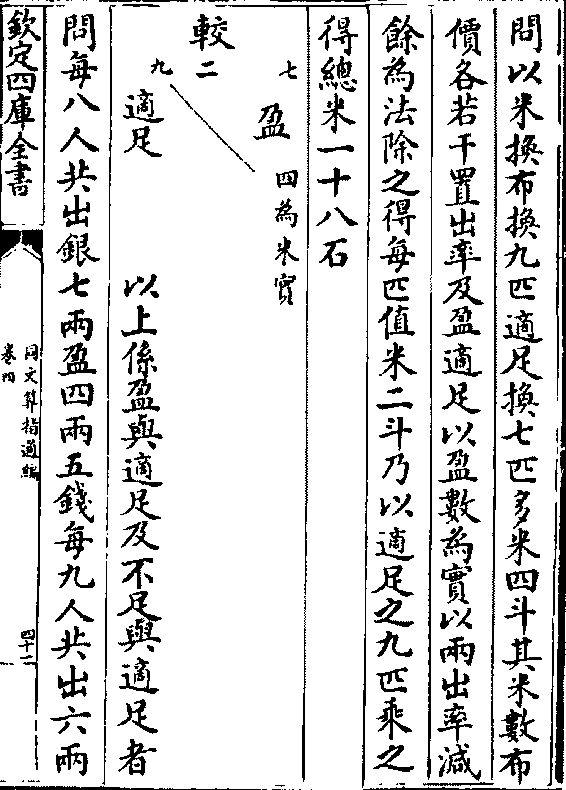 問以米換布換九匹適足換七匹多米四斗其米數布
價各若干置出率及盈適足以盈數為實以兩出率減
餘為法除之得每匹值米二斗乃以適足之九匹乘之
得總米一十八石
七 盈 四為米實
較 二
九 適足
以上係盈與適足及不足與適足者
問每八人共出銀七兩盈四兩五錢每九人共出六兩
欽定四庫全書
同文算指通編
卷四
四十二